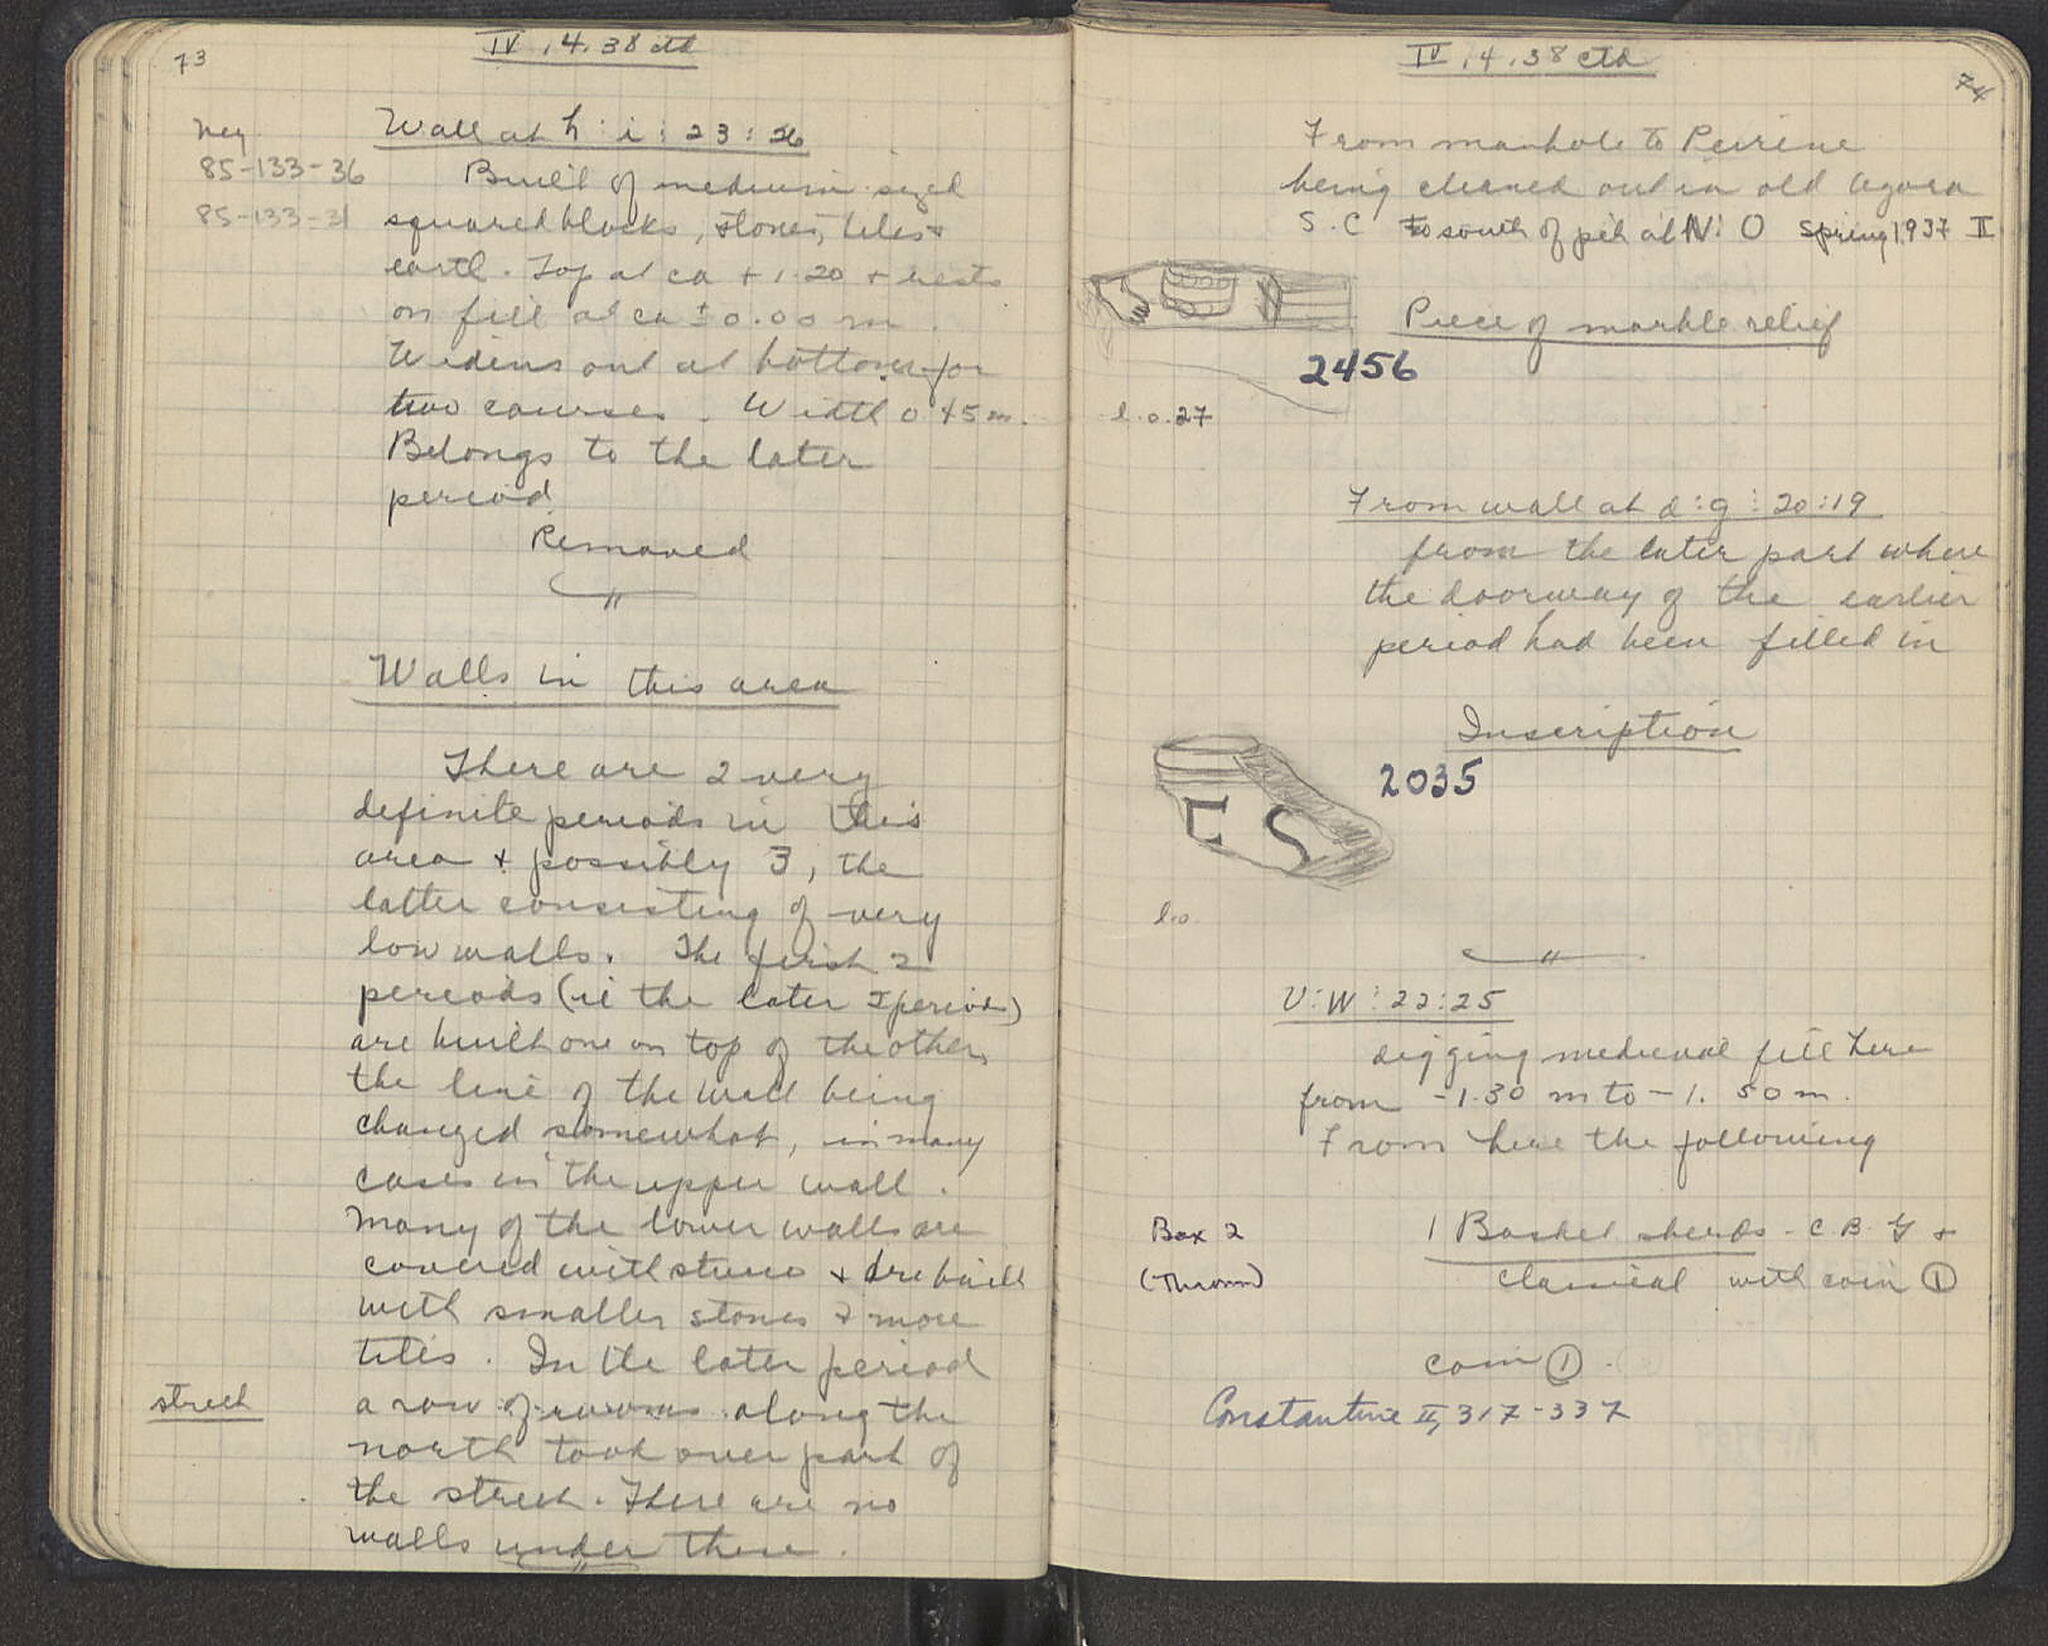 73
IV.4.38 ctd
Neg
85-133-36
85-133-31
Wall at h:i:23:26
Built of medium sized
squared blocks, stones, tiles +
earth. Top at ca + 1.20 + rests
on fill at ca ± 0.00 m.
Widens out at bottom for
two courses. Width 0.45 m.
Belongs to the later
period.
Removed
"
Walls in this area
There are 2 very
definite periods in this
area + possibly 3, the
latter consisting of very
low walls. The first 2
periods (ie the later I period)
are built one on top of the other,
the line of the wall being
changed somewhat, in many
cases in the upper wall.
Many of the lower walls are
covered with stucco + are built
with smaller stones & more
tiles. In the later period
street
a row of rooms along the
north took over part of
the street. There are no
walls under these.
"
IV.4.38 ctd
74
From manhole to Peirene
being cleaned out in old agora
S.C to south of pit at N:O Spring 1937 II
Piece of marble relief
2456
l.o.27
From wall at d:g:20:19
from the later part where
the doorway of the earlier
period had been filled in
Inscription
2035
E S
l.o.
"
U:W:22:25
digging medieval fill here
from -1.30 m to -1.50 m.
From here the following
Box 2
(Thrown)
1 Basket sherds - C.B.G +
classical with coin ①
coin ①.
Constantine II, 317-337